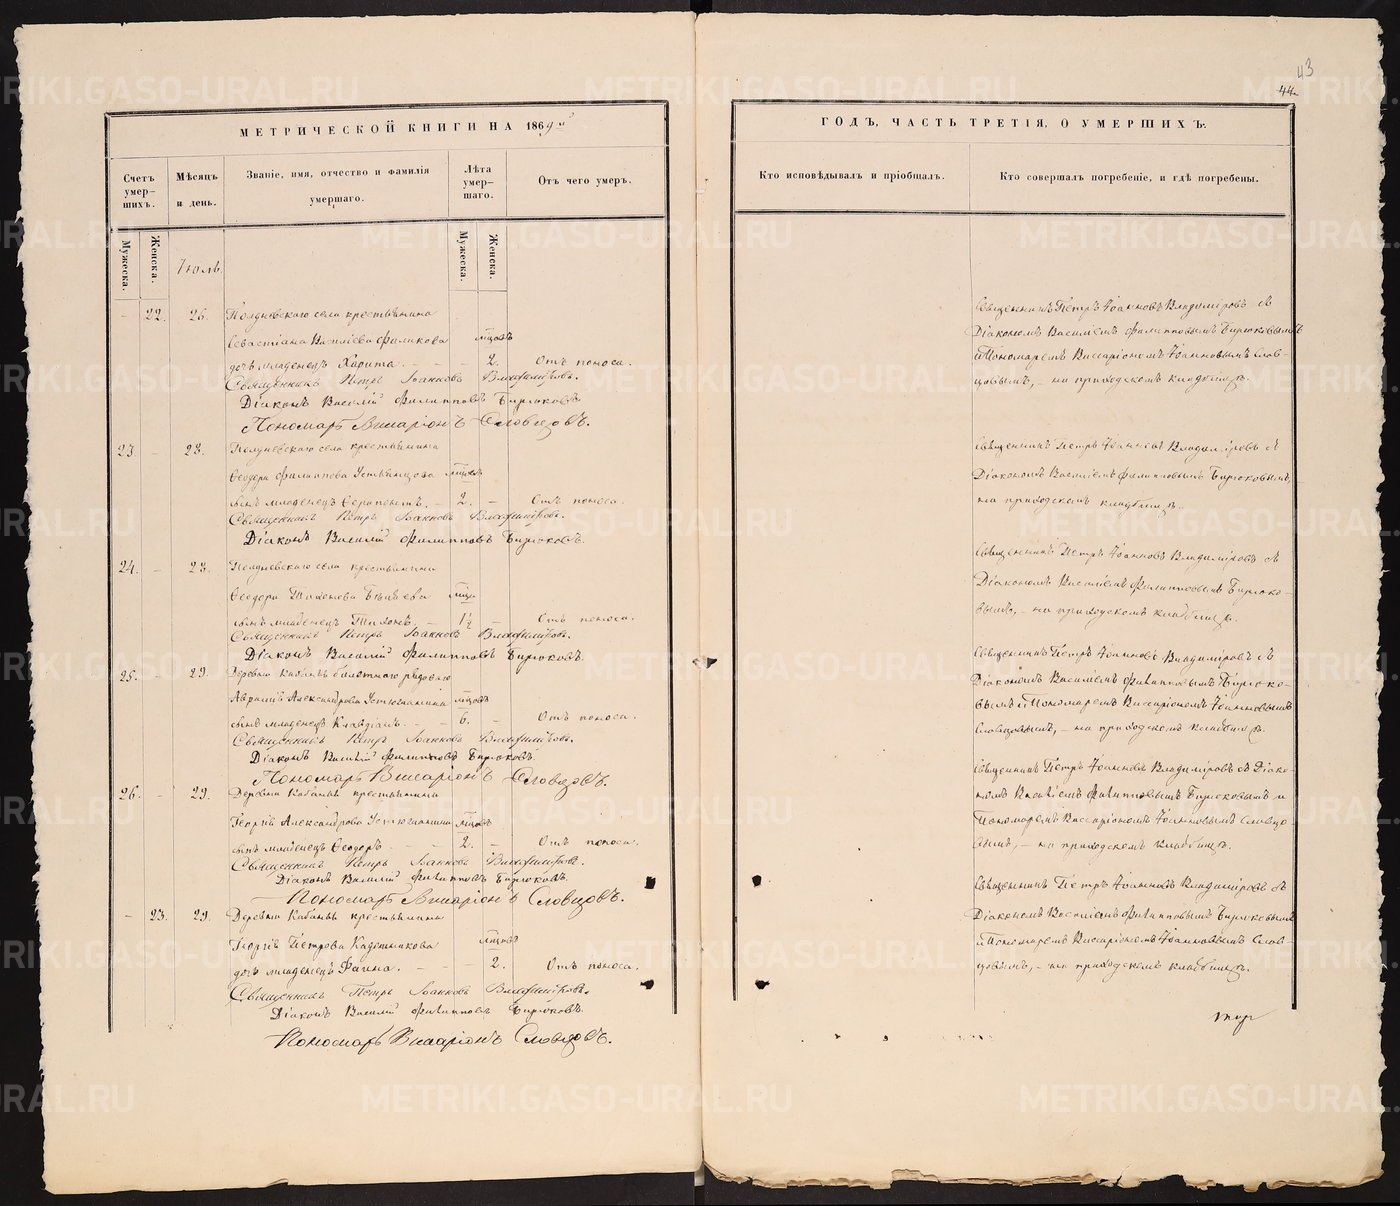 43
44
МЕТРИЧЕСКОЙ КНИГИ НА 1869й
Счетъ умер-шихъ.
Мѣсяцъ и день.
Званіе, имя, отчество и фамилія умершаго.
Лѣта умер-шаго.
Отъ чего умеръ.
Мужеска.
Женска.
Мужеска.
Женска.
Іюль.
22. 26. Полдневскаго села крестьянина
Севастіана Василіева мцовъ
дочь младенецъ Харита. 2. Отъ поноса.
Священникъ Петръ Іоанновъ Владиміровъ.
Діаконъ Василій Филипповъ Бирюковъ
Пономарь Виссаріонъ Словцовъ.
23. 28. Полдневскаго села крестьянина
Ѳеодора Филиппова Устьянцова мцовъ
сынъ младенецъ 2. Отъ поноса.
Священникъ Петръ Іоанновъ Владиміровъ.
Діаконъ Василій Филипповъ Бирюковъ.
24. 28. Полдневскаго села крестьянина
Ѳеодора мца
сынъ младенецъ Тихонъ 1½ Отъ поноса.
Священникъ Петръ Іоанновъ Владиміровъ.
Діаконъ Василій Филипповъ Бирюковъ.
25. 29. Деревни Кабаньи рядоваго
Авраміа Александрова Устюгжанина мцовъ
сынъ младенецъ Клавдіанъ. 6. Отъ поноса.
Священникъ Петръ Іоанновъ Владиміровъ.
Діаконъ Василій Филипповъ Бирюковъ.
Пономарь Виссаріонъ Словцовъ.
26. 29. Деревни Кабаньи крестьянина
Георгія Александрова Устюгжанина мцовъ
сынъ младенецъ Ѳеодоръ. 2. Отъ поноса.
Священникъ Петръ Іоанновъ Владиміровъ.
Діаконъ Василій Филипповъ Бирюковъ.
Пономарь Виссаріонъ Словцовъ.
23. 29. Деревни Кабаньи крестьянина
Георгія Петрова Кадошникова мцовъ
дочь младенецъ Фаина. 2. Отъ поноса.
Священникъ Петръ Іоанновъ Владиміровъ.
Діаконъ Василій Филипповъ Бирюковъ.
Пономарь Виссаріонъ Словцовъ.
ГОДЪ, ЧАСТЬ ТРЕТІЯ, О УМЕРШИХЪ.
Кто исповѣдывалъ и пріобщалъ.
Кто совершалъ погребеніе, и гдѣ погребены.
Священникъ Петръ Іоанновъ Владиміровъ съ
Діакономъ Василіемъ Филипповымъ Бирюковымъ
и Пономаремъ Виссаріономъ Іоанновымъ Слов-
цовымъ, – на приходскомъ кладбищѣ.
Священникъ Петръ Іоанновъ Владиміровъ съ
Діакономъ Василіемъ Филипповымъ Бирюковымъ,
на приходскомъ кладбищѣ.
Священникъ Петръ Іоанновъ Владиміровъ съ
Діакономъ Василіемъ Филипповымъ Бирюко-
вымъ, – на приходскомъ кладбищѣ.
Священникъ Петръ Іоанновъ Владиміровъ съ
Діакономъ Василіемъ Филипповымъ Бирюко-
вымъ и Пономаремъ Виссаріономъ Іоанновымъ
Словцовымъ, – на приходскомъ кладбищѣ.
Священникъ Петръ Іоанновъ Владиміровъ съ Діако-
номъ Василіемъ Филипповымъ Бирюковымъ и
Пономаремъ Виссаріономъ Іоанновымъ Словцо
вымъ, – на приходскомъ кладбищѣ.
Священникъ Петръ Іоанновъ Владиміровъ съ
Діакономъ Василіемъ Филипповымъ Бирюковымъ
и Пономаремъ Виссаріономъ Іоанновымъ Слов-
цовымъ, – на приходскомъ кладбищѣ.
METRIKI.GASO-URAL.RU